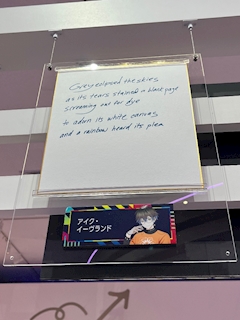 Grey eclipsed the skies
as its tears stained a black page
screaming out for dye
to adorn its white canvas
and a rainbow heard its plea
アイク・
イーヴランド